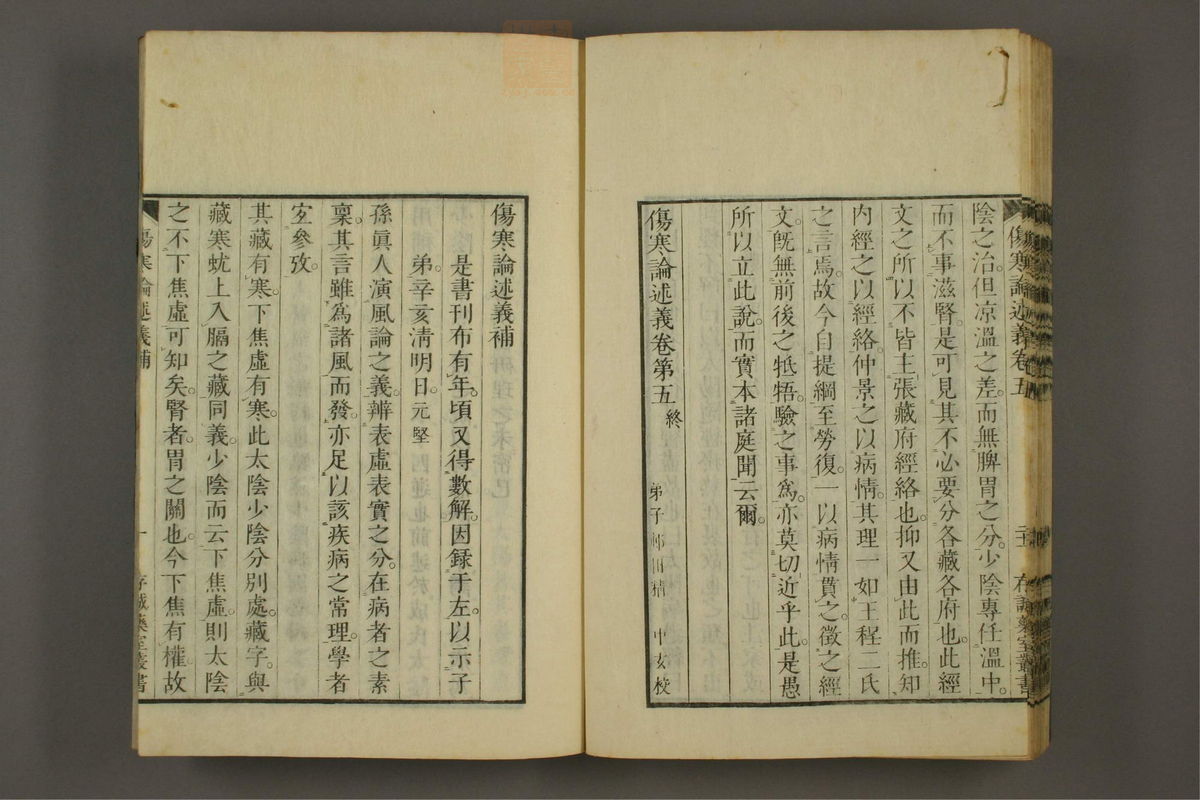 傷寒論述義卷五
陰之治。但凉溫之差。而無脾胃之分。少陰專任溫中。
而不事滋腎。是可見其不必要分各藏各府也。此經
文之所以不皆主張藏府經絡也。抑又由此而推。知
內經之以經絡。仲景之以病情。其理一如王程二氏
之言焉。故今自提綱至勞復。一以病情貫之。徵之經
文。旣無前後之牴牾。驗之事爲。亦莫切近乎此。是愚
所以立此說。而實本諸庭聞云爾。
傷寒論述義卷第五 終 弟子 校
傷寒論述義補
是書刊布有年。頃又得數解。因録于左。以示子
弟。辛亥淸明日。元堅
孫眞人演風論之義。辨表虛表實之分。在病者之素
稟。其言雖爲諸風而發。亦足以該疾病之常理。學者
宜參攷。
其藏有寒。下焦虛有寒。此太陰少陰分別處。藏字。與
藏寒蚘上入膈之藏同義。少陰而云下焦虛。則太陰
之不下焦虛可知矣。腎者。胃之關也。今下焦有權。故
傷寒論述義補 一 存誠藥室叢書